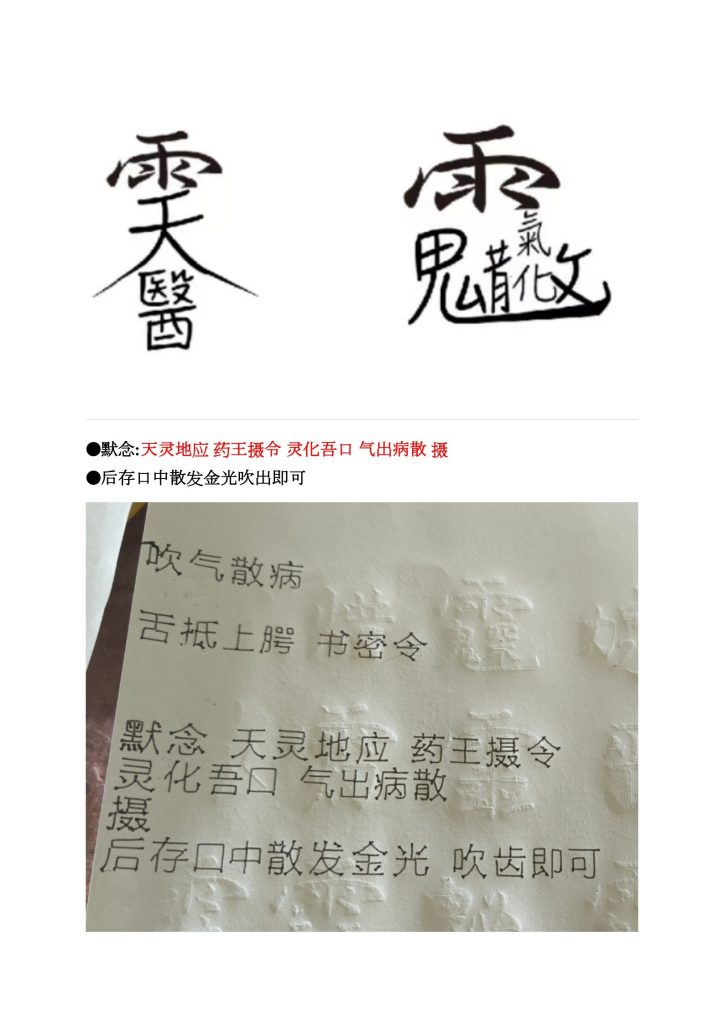 ●默念:天灵地应 药王摄令 灵化吾口 气出病散 摄
●后存口中散发金光吹出即可
吹气散病
舌抵上腭 书密令
默念 天灵地应 药王摄令
灵化吾口 气出病散
摄
后存口中散发金光 吹齿即可